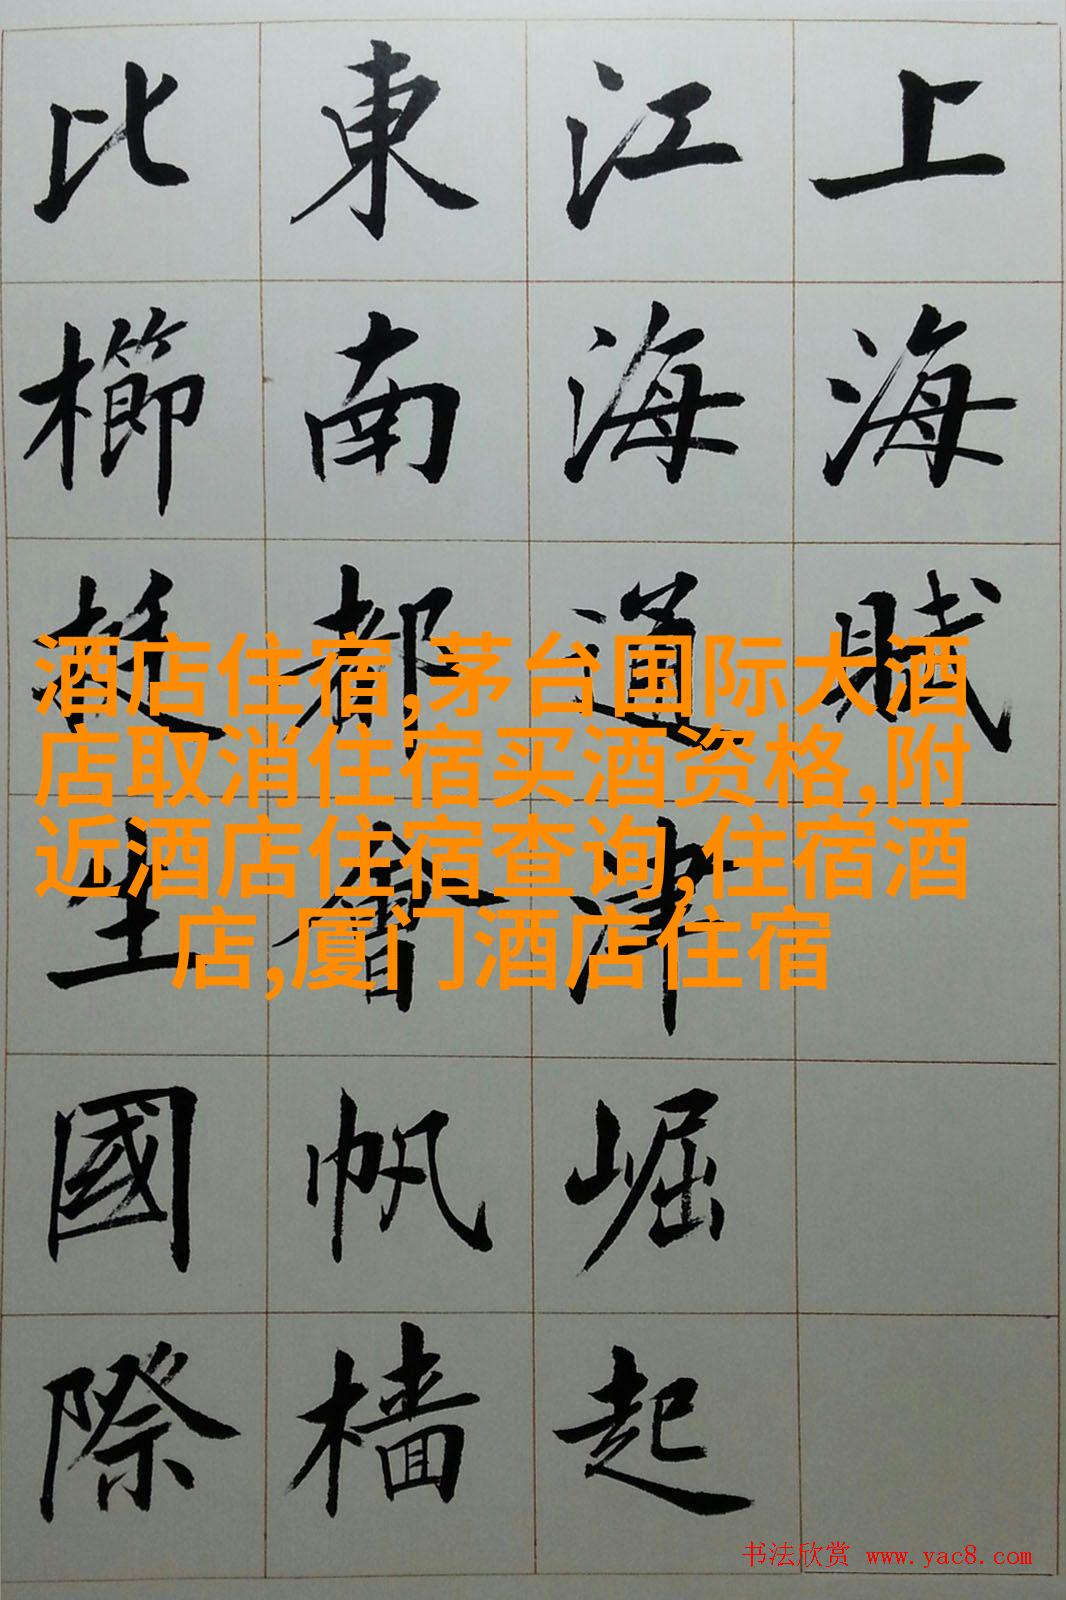 上海賦
江海通津崛起
東南都會帆檣
比櫛挺生國際
酒店住宿,茅台国际大酒
店取消住宿买酒资格,附
近酒店住宿查询,住宿酒
店,厦门酒店住宿
书法欣赏 www.yac8.com